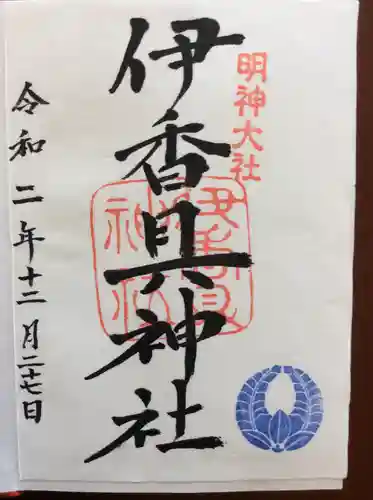 明神大社
伊香具神社
伊香具神社
令和二年十二月二十七日